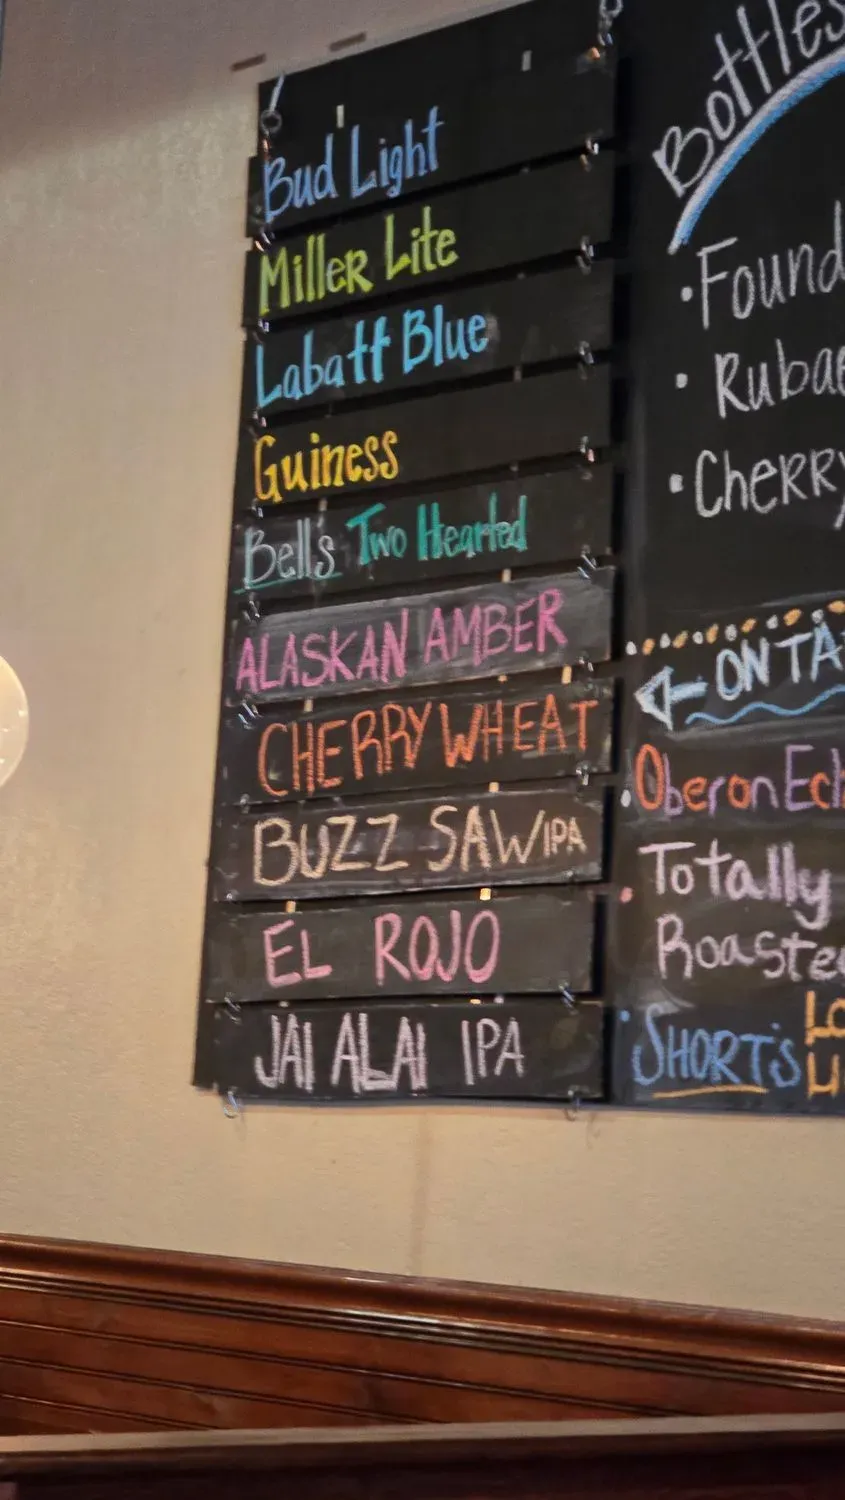 Bud Light
Miller Lite
Labatt Blue
Guiness
Bells Two Hearted
ALASKAN AMBER
CHERRY WHEAT
BUZZ SAW IPA
EL ROJO
JAI ALAI IPA
Bottles
• Found
• Rubae
• CHERRY
ON TA
• Oberon Ecl
• Totally
Roaste
• SHORT'S